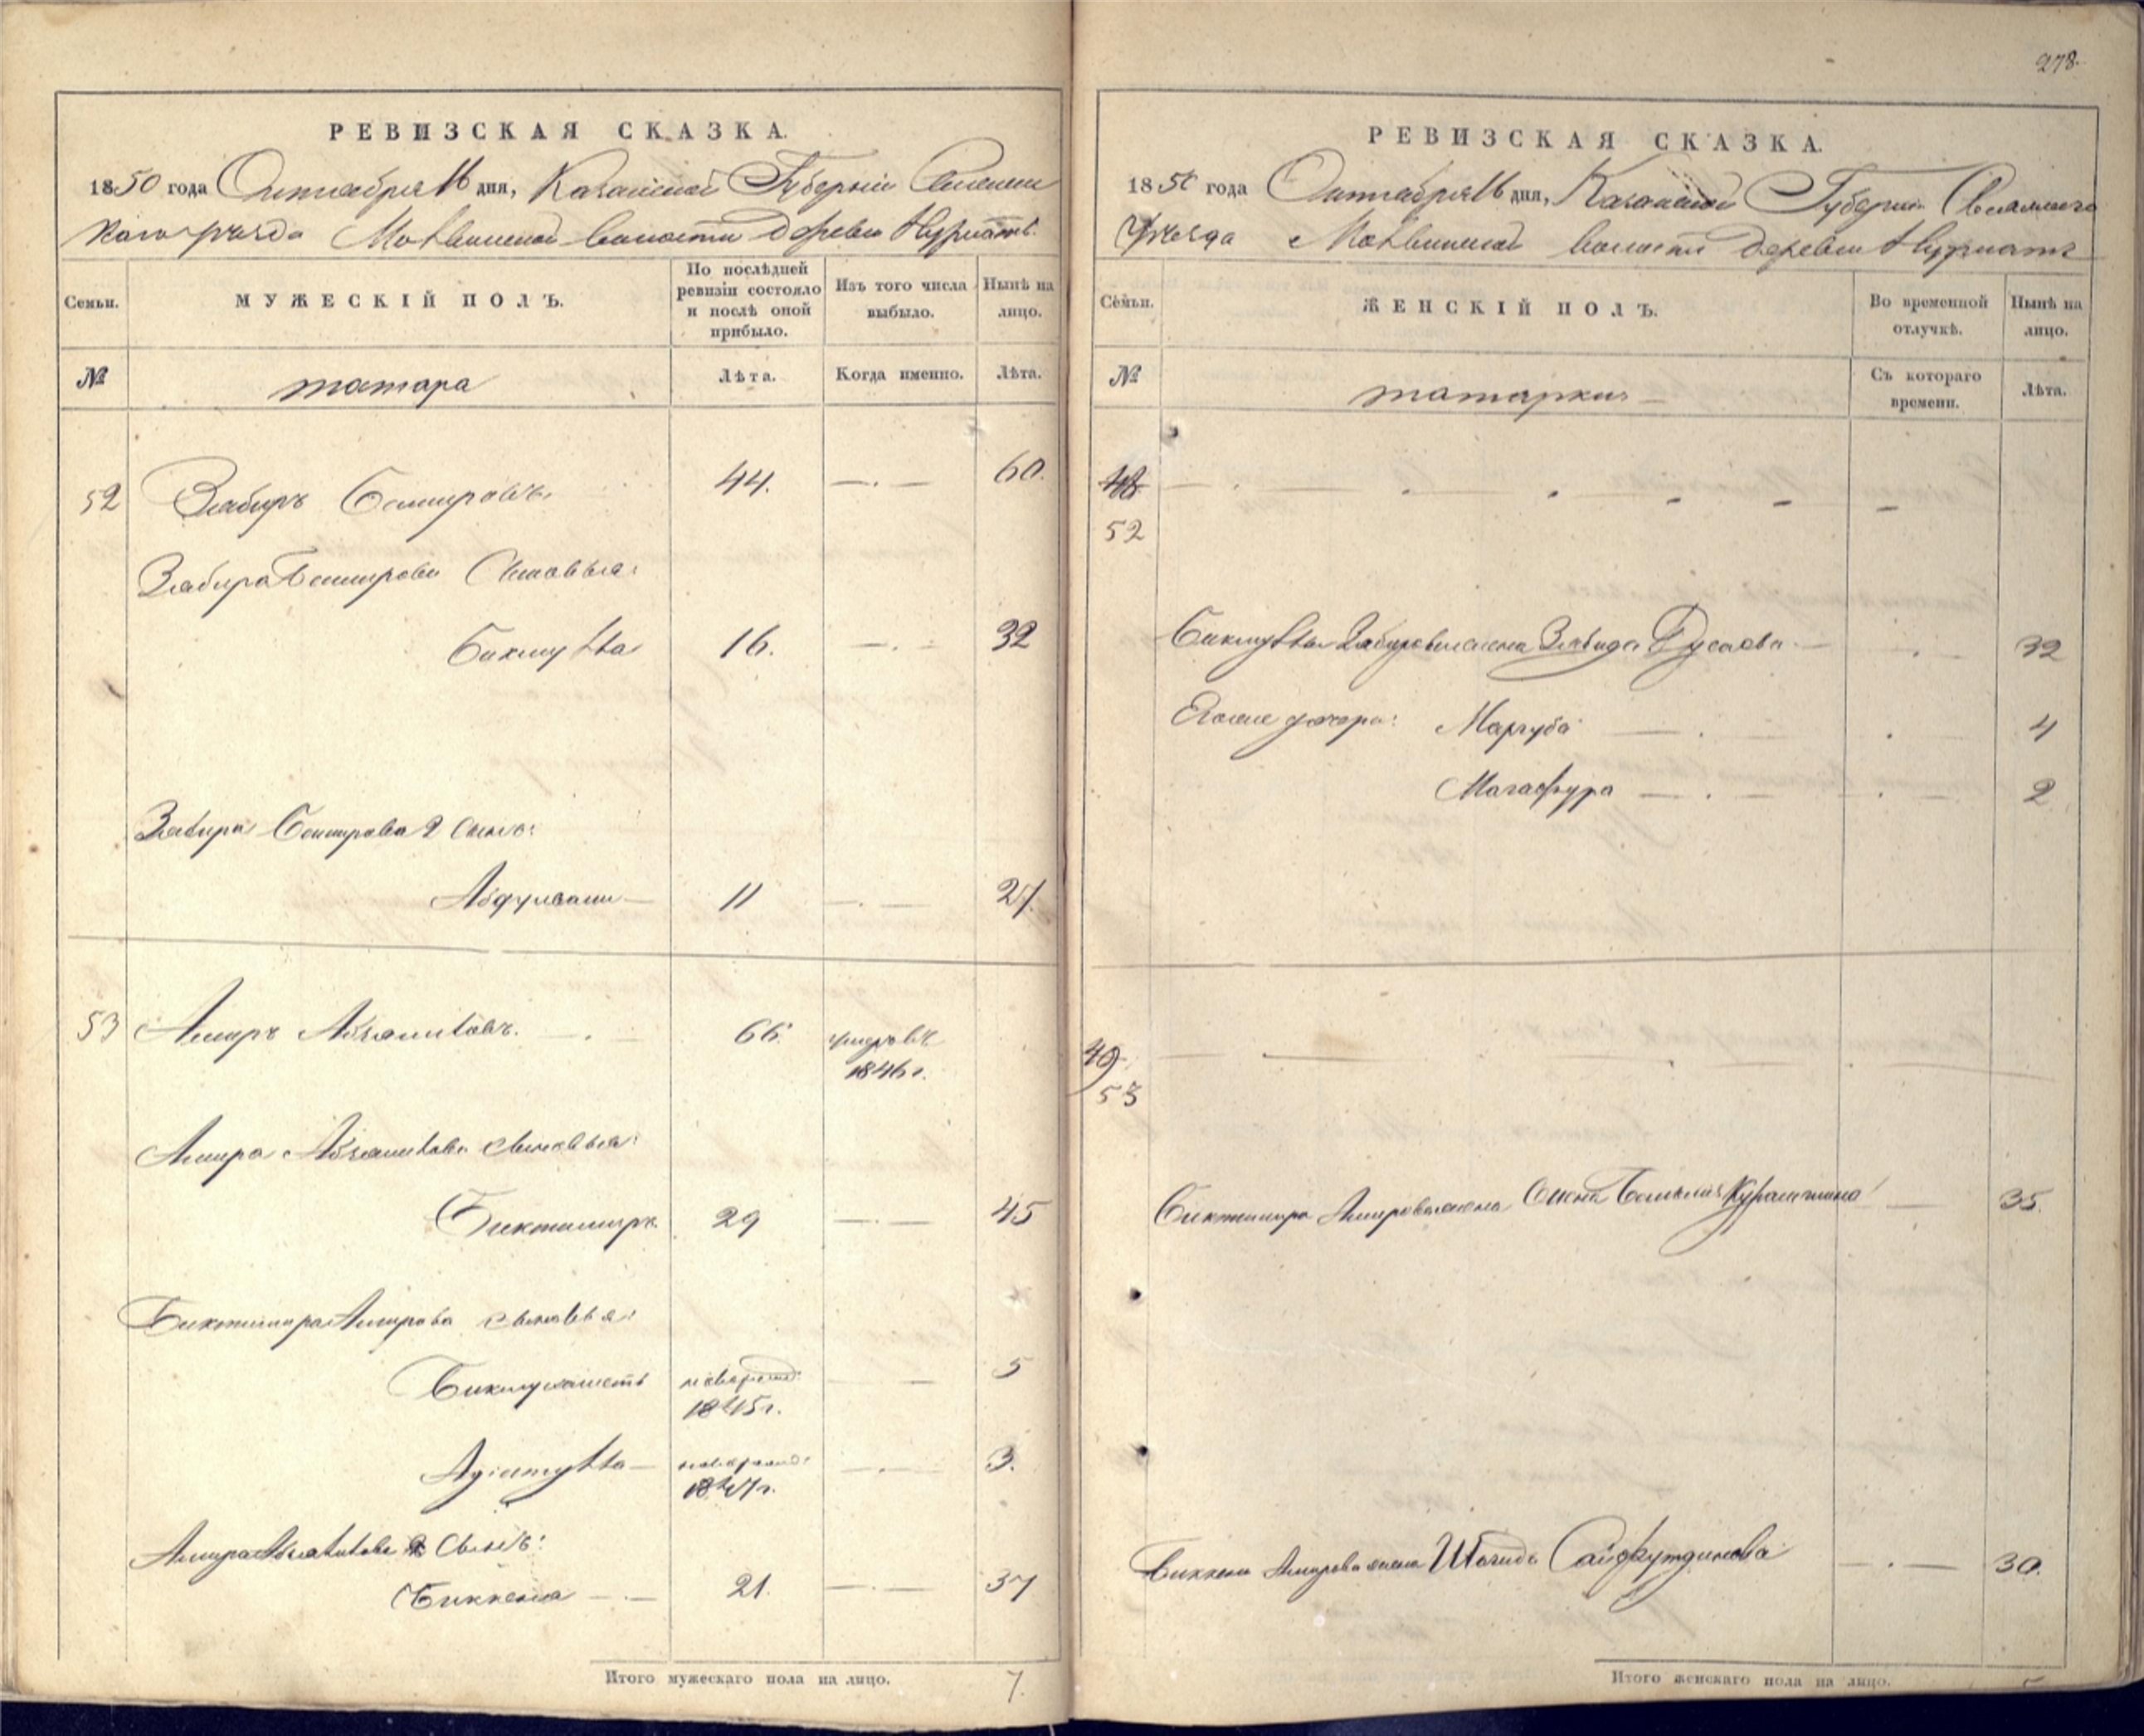 РЕВИЗСКАЯ СКАЗКА.
1850 года Октября 16 дня, Казанской Губернии Свияж
скаго уезда Мольвинской волости деревни Нурлатъ
Семьи.
МУЖЕСКІЙ ПОЛЪ.
По послѣдней ревизіи состояло и послѣ оной прибыло.
Изъ того числа выбыло.
Нынѣ на лицо.
№
татара
Лѣта.
Когда именно.
Лѣта.
52 Забиръ Башировъ 44. 60.
Забира Баширова Сыновья:
16. 32
Забира Баширова 2 сынъ:
11 27.
53 Амиръ 66. умеръ въ
1846 г.
Амира сыновья:
Биктимиръ 29 45
Биктимира Амирова сыновья:
Бикмухаметъ новорожд. 5
1845 г.
новорожд. 3.
1847 г.
Амира 2 сынъ:
Биккеня 21. 37
Итого мужескаго пола на лицо. 7.
278.
РЕВИЗСКАЯ СКАЗКА.
1850 года Октября 16 дня, Казанской Губернии Свияжскаго
Уезда Мольвинской волости деревни Нурлатъ
Семьи.
ЖЕНСКІЙ ПОЛЪ.
Во временной отлучкѣ.
Нынѣ на лицо.
№
татарки
Съ котораго времени.
Лѣта.
48
52
Забирова жена Забида 32
дочери: Маргуба 4
Магафура 2
49
53
Биктимира Амирова жена 35.
Биккени Амирова жена Сайфутдинова 30.
Итого женскаго пола на лицо. 5